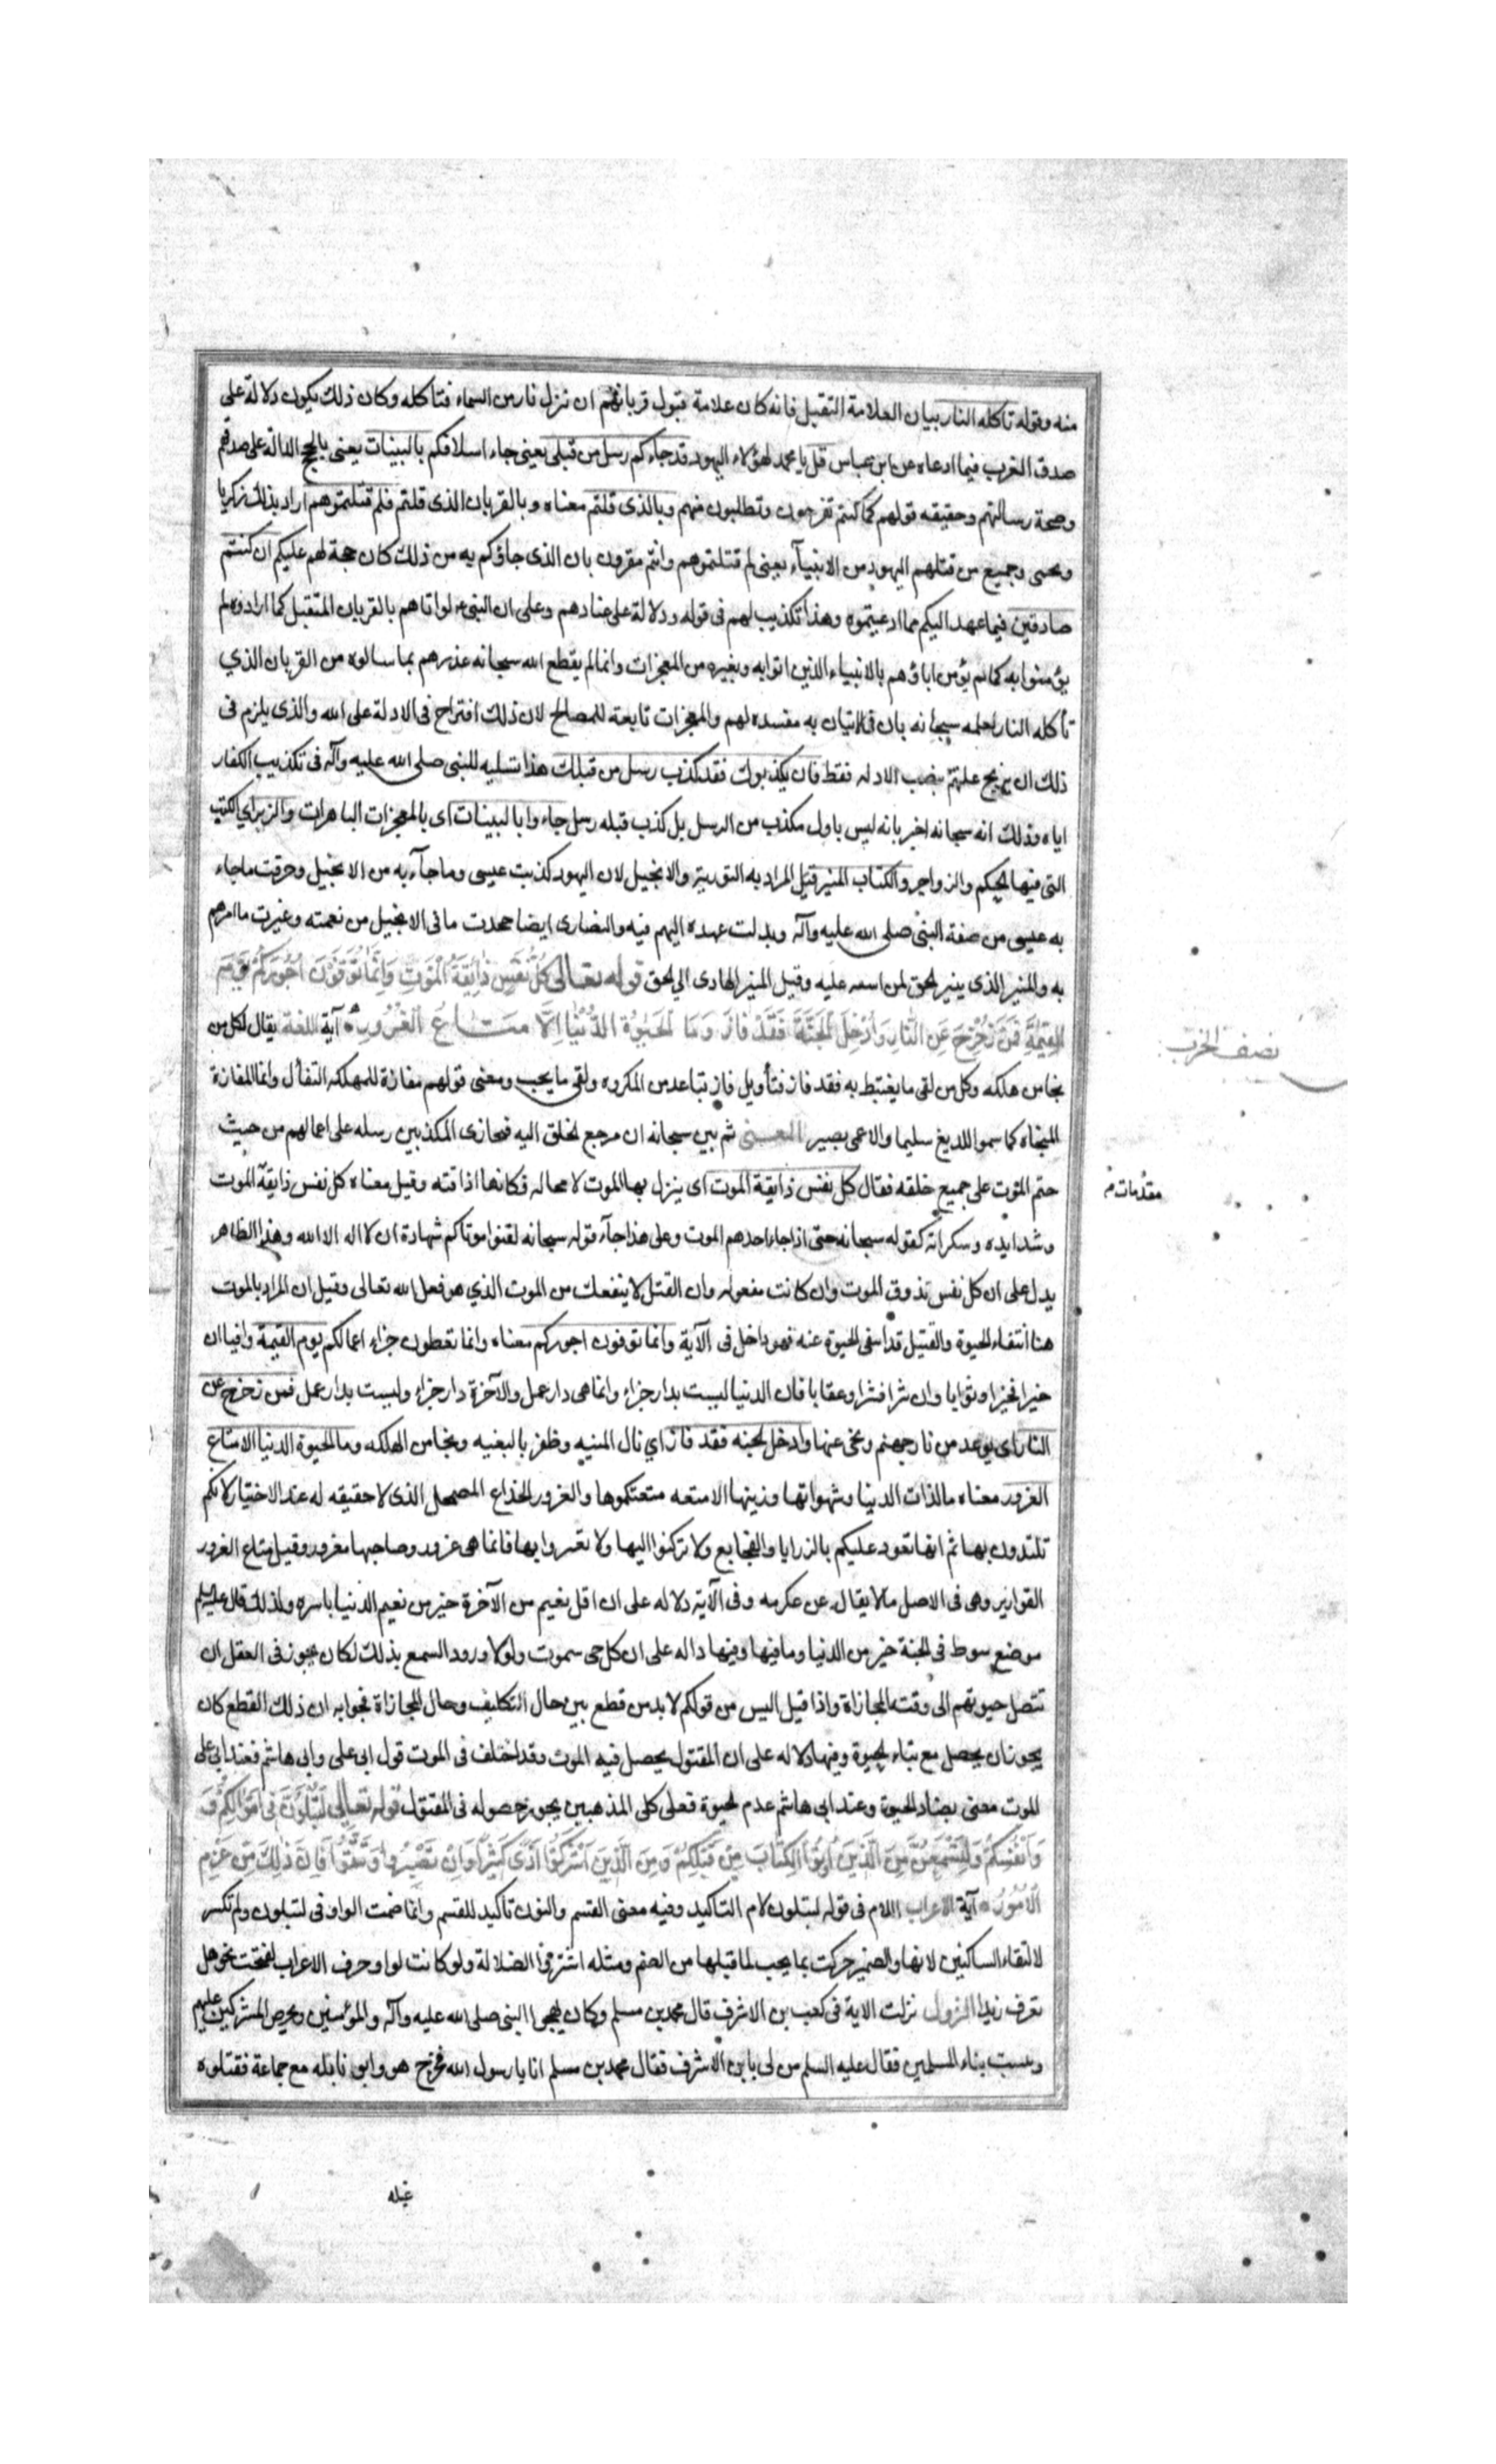 منه وقوله تاكله النار بيان العلامة التقبل فانه كان علامة قبول قربانهم ان تنزل نار من السماء فتاكله وكان ذلك يكون دلالة على
صدق المقرب فيما ادعاه عن ابن عباس قل يا محمد لهؤلاء اليهود قد جاءكم رسل من قبلى يعنى جاء اسلافكم بالبينات يعنى بالحجج الدالة على صدقهم
وصحة رسالتهم وحقيقه قولهم كما كنتم تقرحون وتطلبون منهم وبالذى قلتم معناه وبالقربان الذى قلتم فلم قتلتموهم اراد بذلك زكريا
ويحيى وجميع من قتلهم اليهود من الانبيآء يعنى لم قتلتموهم وانتم مقرون بان الذى جاؤكم به من ذلك كان حجة لهم عليكم ان كنتم
صادقين فيما عهد اليكم مما ادعيتموه وهذا تكذيب لهم فى قوله ودلالة على عنادهم وعلى ان النبى لو اتاهم بالقربان المتقبل كما ارادوه لم
يؤمنوا به كما لم يؤمن اباؤهم بالانبياء الذين اتوا به وبغيره من المعجزات وانما لم يقطع الله سبحانه عذرهم بما سالوه من القربان الذي
تأكله النار لعلمه سبحانه بان فى الاتيان به مفسده لهم والمعجزات تابعة للمصالح لان ذلك اقتراح فى الادلة على الله والذى يلزم فى
ذلك ان يزيح علتهم بنصب الادله فقط فان يكذبوك فقد كذب رسل من قبلك هذا تسليه للنبى صلى الله عليه وآله فى تكذيب الكفار
اياه وذلك انه سبحانه اخبر بانه ليس باول مكذب من الرسل بل كذب قبله رسل جاءوا بالبينات اى بالمعجزات الباهرات والزبر اي الكتب
التى فيها الحكم والزواجر والكتاب المنير قيل المراد به التورية والانجيل لان اليهود كذبت عيسى وما جآء به من الانجيل وحرفت ما جاء
به عيسى من صفة النبى صلى الله عليه وآله وبدلت عهده اليهم فيه والنصارى ايضا جحدت ما فى الانجيل من نعته وغيرت ما امرهم
به والمنير الذى ينير الحق لمن اسمه عليه وقيل المنير الهادى الي الحق قوله تعالى كُلُّ نَفْسٍ ذَائِقَةُ الْمَوْتِ وَاِنَّمَا تُوَفَّوْنَ اُجُورَكُمْ يَوْمَ
الْقِيٰمَةِ فَمَنْ زُحْزِحَ عَنِ النَّارِ وَاُدْخِلَ الْجَنَّةَ فَقَدْ فَازَ وَمَا الْحَيٰوةُ الدُّنْيَا اِلَّا مَتَاعُ الْغُرُورِ آية اللغة يقال لكل من
نجا من هلكه وكل من لقى ما يغتبط به فقد فاز فتأويل فاز تباعد من المكروه ولقى ما يحب ومعنى قولهم مفازة للمهلكه التفأل وانما المفازة
المنجاه كما سموا اللديغ سليما والاعمى بصير المعنى ثم بين سبحانه ان مرجع الخلق اليه فيجازى المكذبين رسله على اعمالهم من حيث
حتم الموت على جميع خلقه فقال كل نفس ذايقة الموت اى ينزل بها الموت لا محاله فكانها اذاقته وقيل معناه كل نفس ذايقة الموت
وشدايده وسكراته كقوله سبحانه حتى اذا جاء احدهم الموت وعلى هذا جآء قوله سبحانه لقنوا موتاكم شهادة ان لا اله الا الله وهذا الظاهر
يدل على ان كل نفس تذوق الموت وان كانت مفعوله وان القتل لا ينفعك من الموت الذي هو فعل الله تعالى وقيل ان المراد بالموت
هنا انتفاء الحيوة والقتيل قد انتفى الحيوة عنه فهو داخل فى الآية وانما توفون اجوركم معناه وانما تعطون جزاء اعمالكم يوم القيمة وافيا ان
خيرا فخيرا وثوابا وان شرا فشرا وعقابا فان الدنيا ليست بدار جزاء وانما هى دار عمل والآخرة دار جزاء وليست بدار عمل فمن زحزح عن
النار اى بوعد من نار جهنم ونحى عنها وادخل الجنه فقد فاز اي نال المنيه وظفر بالبغيه ونجا من الهلكه وما الحيوة الدنيا الا متاع
الغرور معناه ما لذات الدنيا وشهواتها وزينها الا متعه متعتكموها والغرور الخداع المضمحل الذى لا حقيقه له عند الاختيار لانكم
تلتذون بها ثم انها تعود عليكم بالرزايا والفجايع ولا تركنوا اليها ولا تغتروا بها فانما هى غرور وصاحبها مغرور وقيل متاع الغرور
القوارير وهى فى الاصل ما لا يقال عن عكرمه وفى الآية دلاله على ان اقل نعيم من الآخرة خير من نعيم الدنيا باسره ولذلك قال عليه السلام
موضع سوط فى الجنة خير من الدنيا وما فيها وفيها داله على ان كل حى سموت ولولا ورود السمع بذلك لكان يجوز فى العقل ان
تتصل حيوتهم الى وقت المجازاة واذا قيل اليس من قولكم لا بد من قطع بين حال التكليف وحال المجازاة فجوابه ان ذلك القطع كان
يجوز ان يحصل مع بقاء الحيوة وفيها دلاله على ان المقتول يحصل فيه الموت وقد اختلف فى الموت قول ابى على وابى هاشم فعند ابى على
الموت معنى يضاد الحيوة وعند ابى هاشم عدم الحيوة فعلى كلى المذهبين يجوز حصوله فى المقتول قوله تعالى لَتُبْلَوُنَّ فِى اَمْوَالِكُمْ وَ
وَاَنْفُسِكُمْ وَلَتَسْمَعُنَّ مِنَ الَّذِينَ اُوتُوا الْكِتَابَ مِنْ قَبْلِكُمْ وَمِنَ الَّذِينَ اَشْرَكُوا اَذًى كَثِيرًا وَاِنْ تَصْبِرُوا وَتَتَّقُوا فَاِنَّ ذٰلِكَ مِنْ عَزْمِ
الْاُمُورِ آية الاعراب اللام فى قوله لتبلون لام التاكيد وفيه معنى القسم والنون تاكيد للقسم وانما ضمت الواو فى لتبلون ولم تكسر
لالتقاء الساكنين لانها واو الضمير حركت بما يجب لما قبلها من الضم ومثله اشتروا الضلالة ولو كانت لواو حرف الاعراب لفتحت نحو هل
تعرف زيدا النزول نزلت الاية فى كعب بن الاشرف قال محمد بن مسلم وكان يهجوا النبى صلى الله عليه وآله والمؤمنين ويحرص المشركين عليهم
ويسبب بنساء المسلمين فقال عليه السلم من لى بابن الاشرف فقال محمد بن مسلم انا يا رسول الله فخرج هو وابو نايله مع جماعة فقتلوه
نصف الحزب
مقدمات
غيله